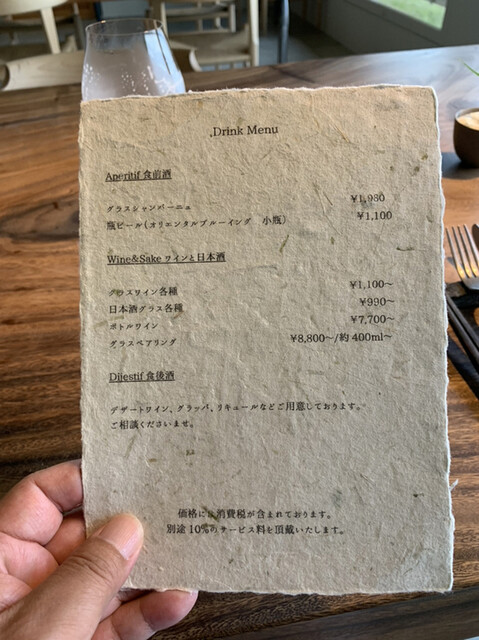 Drink Menu
Aperitif 食前酒
グラスシャンパーニュ ¥1,980
瓶ビール(オリエンタルブルーイング 小瓶) ¥1,100
Wine&Sake ワインと日本酒
グラスワイン各種 ¥1,100~
日本酒グラス各種 ¥990~
ボトルワイン ¥7,700~
グラスペアリング ¥8,800~/約 400ml~
Dijestif 食後酒
デザートワイン、グラッパ、リキュールなどご用意しております。
ご相談くださいませ。
価格には消費税が含まれております。
別途 10%のサービス料を頂戴いたします。